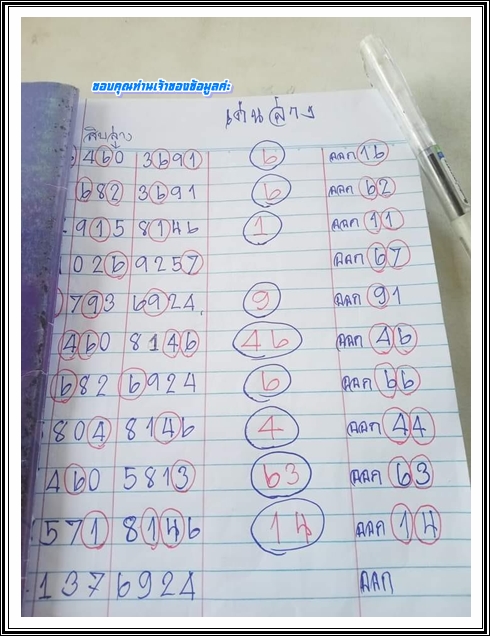 ขอบคุณท่านเจ้าของข้อมูลค่ะ
เด่นล่าง
สิบล่าง
460 3691 6 ออก 16
682 3691 6 ออก 62
915 8146 1 ออก 11
026 9257 ออก 67
793 6924 9 ออก 91
460 8146 46 ออก 46
682 6924 6 ออก 66
804 8146 4 ออก 44
460 5813 63 ออก 63
571 8146 14 ออก 14
137 6924 ออก